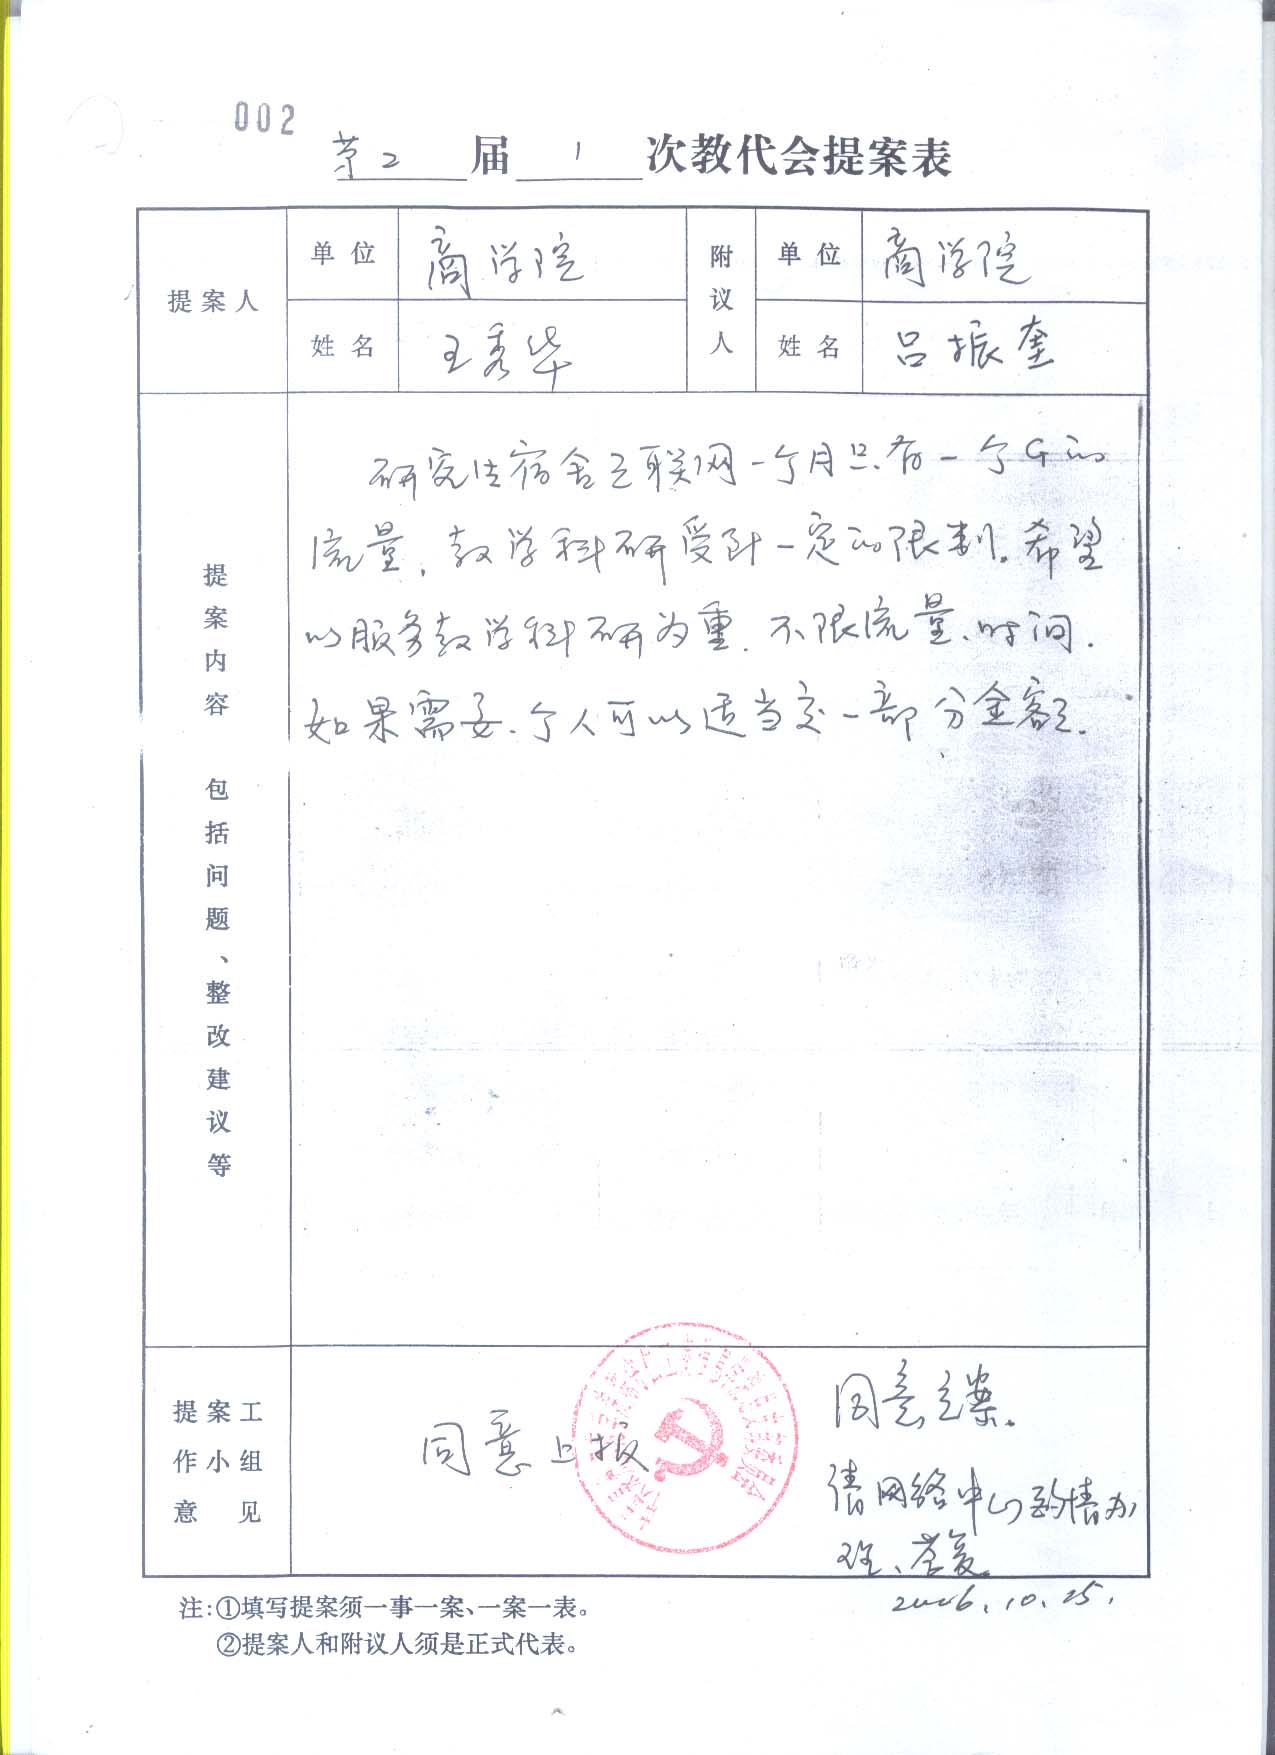 002
第2届1次教代会提案表
提案人
单位
商学院
姓名
王秀华
附议人
单位
商学院
姓名
吕振奎
提案内容 包括问题、整改建议等
研究生宿舍互联网一个月只有一个G的
流量，教学科研受到一定的限制。希望
以服务教学科研为重，不限流量、时间.
如果需要，个人可以适当交一部分金额.
提案工
作小组
意见
同意上报
同意立案。
请网络中心酌情办
理、答复。
2006.10.25.
注:①填写提案须一事一案、一案一表。
②提案人和附议人须是正式代表。